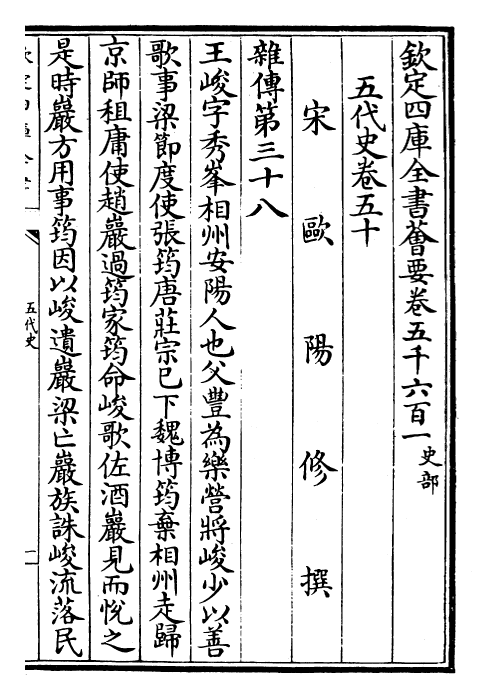 欽定四庫全書薈要卷五千六百一 史部
五代史卷五十
宋歐陽修撰
雜傳第三十八
王峻字秀峯相州安陽人也父豐為樂營將峻少以善
歌事梁節度使張筠唐莊宗已下魏博筠棄相州走歸
京師租庸使趙巖過筠家筠命峻歌佐酒巖見而悅之
是時巖方用事筠因以峻遺巖梁亡巖族誅峻流落民
五代史
一